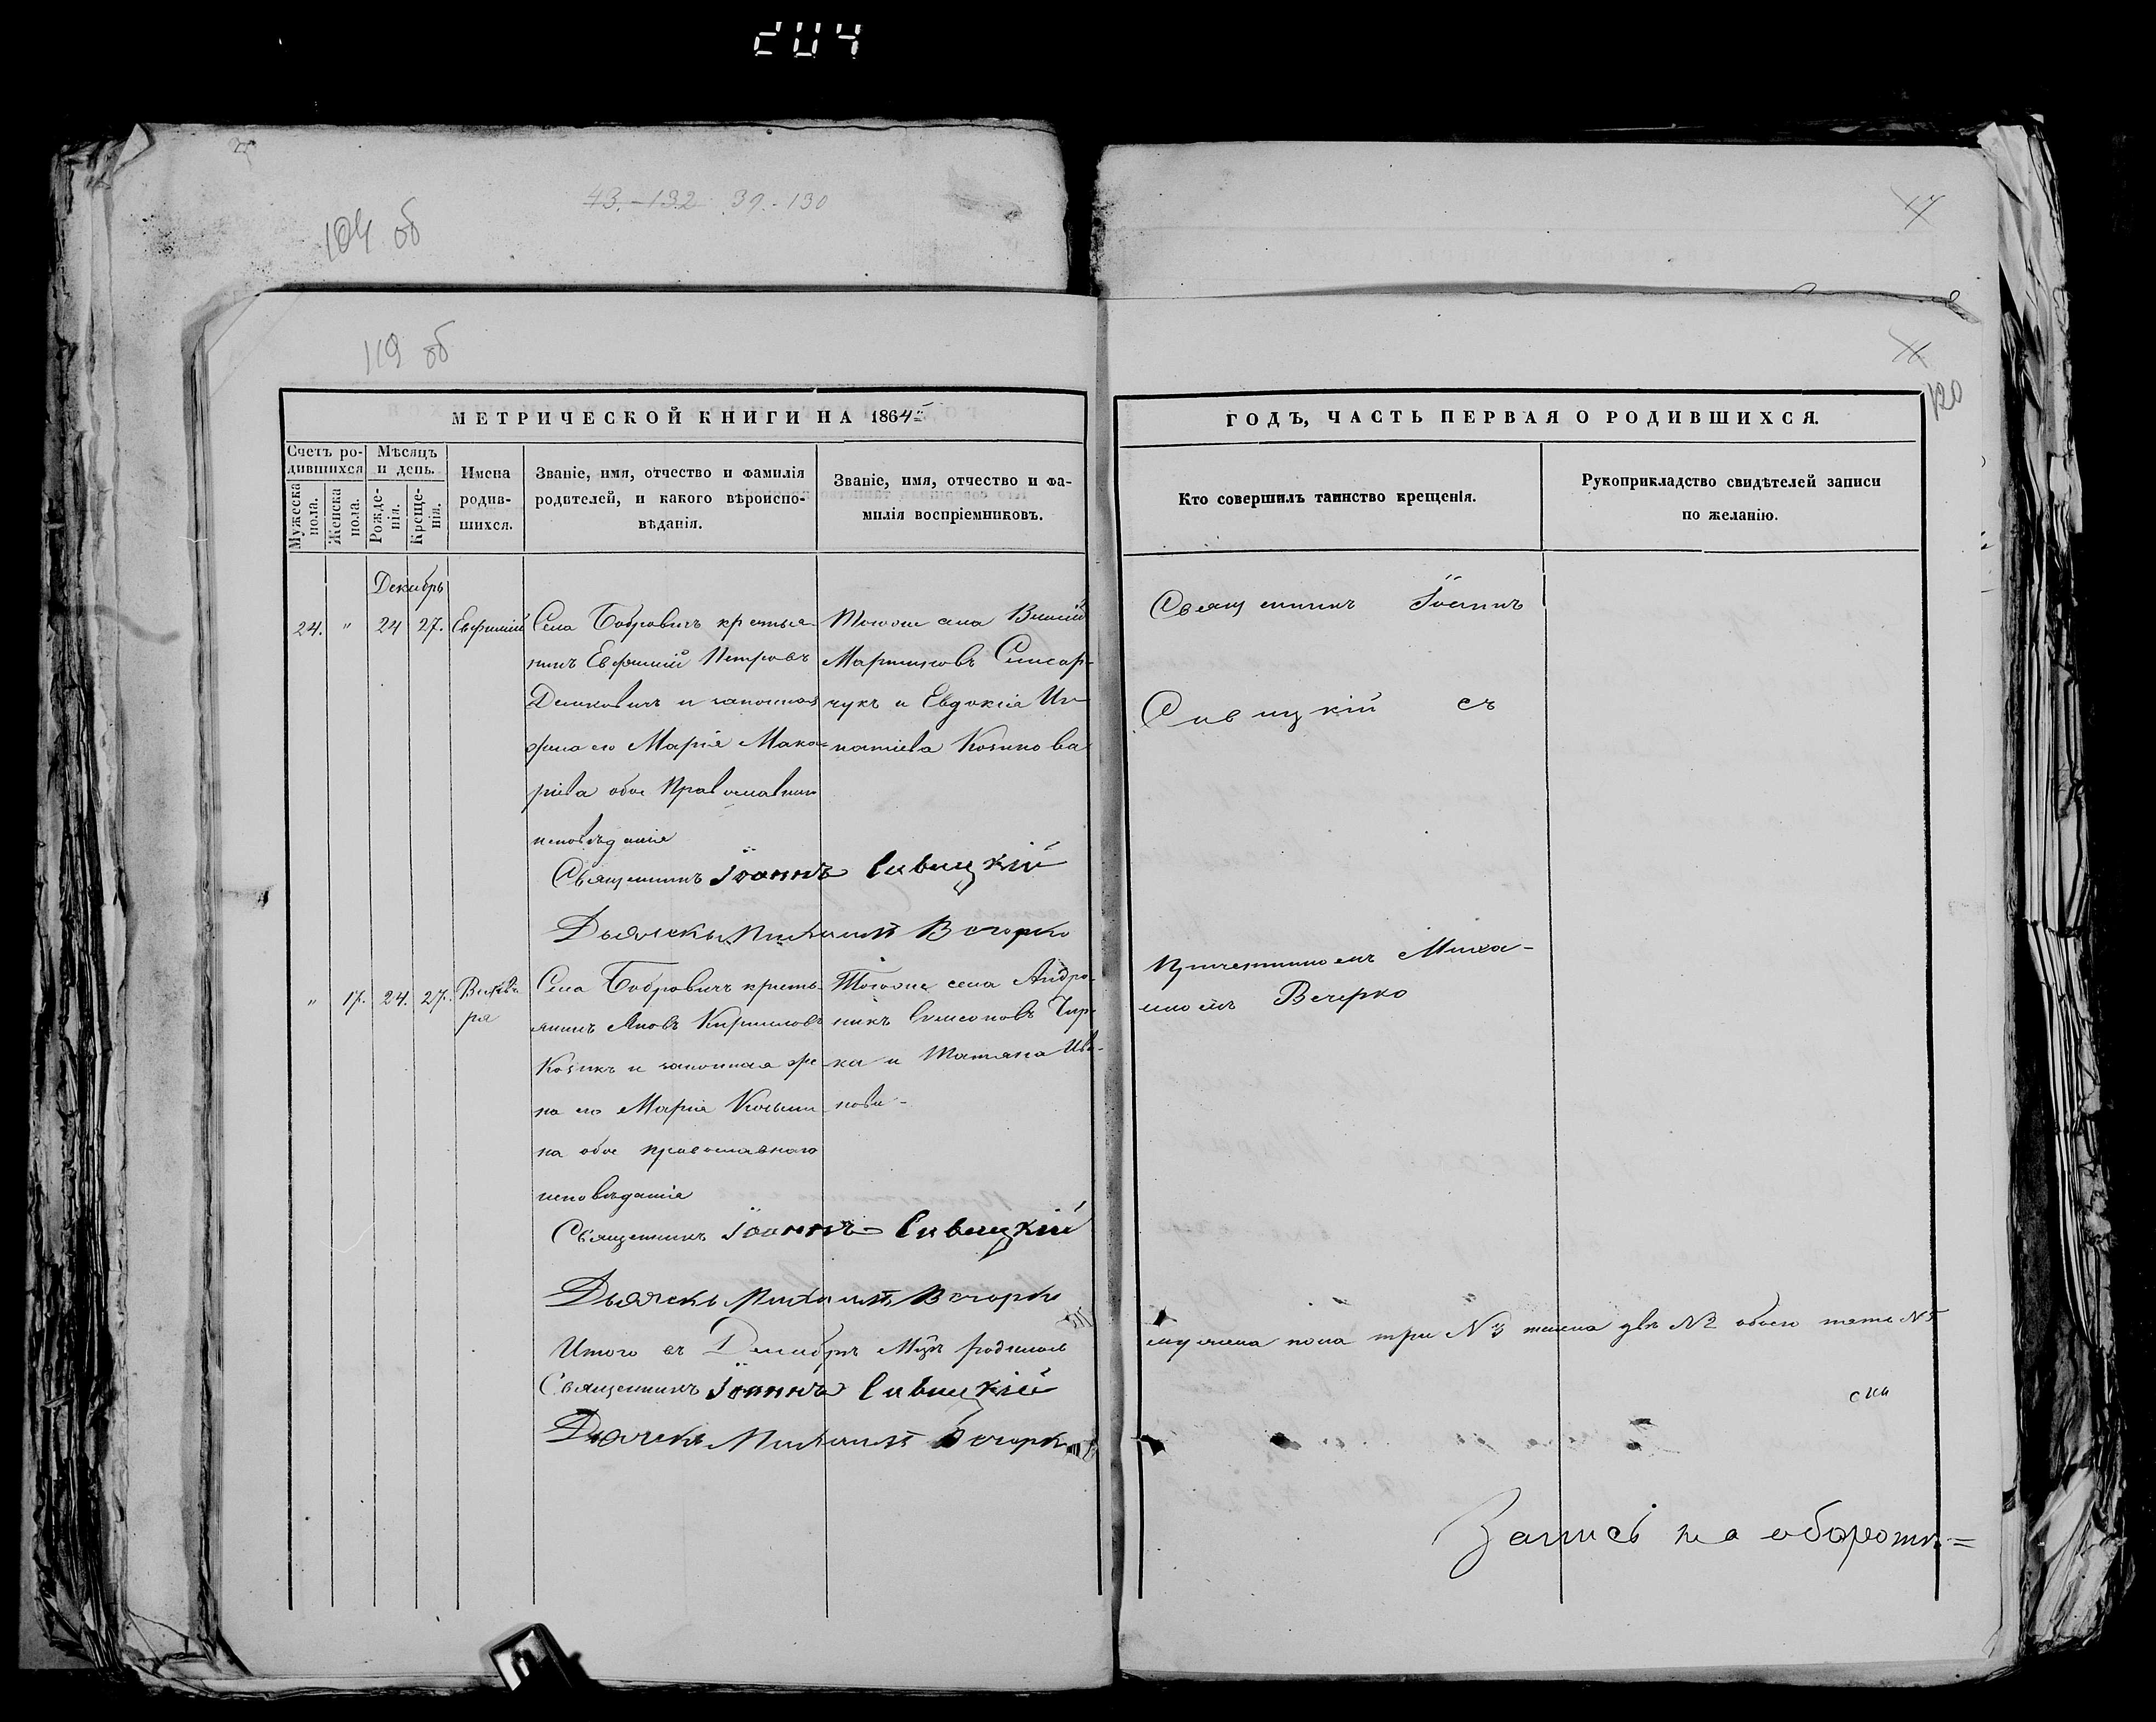 204
43.-132 39.-130
104 об
119 об
120
МЕТРИЧЕСКОЙ КНИГИ НА 1864й
ГОДЪ, ЧАСТЬ ПЕРВАЯ О РОДИВШИХСЯ.
Счетъ ро-
дившихся
Мужеска пола.
Женска пола.
Мѣсяцъ
и день.
Рожде-
нія.
Креще-
нія.
Имена
родив-
шихся.
Званіе, имя, отчество и фамилія
родителей, и какого вѣроиспо-
вѣданія.
Званіе, имя, отчество и фа-
милія воспріемниковъ.
Кто совершилъ таинство крещенія.
Рукоприкладство свидѣтелей записи
по желанію.
Декабрь
24. " 24 27. Евфимій
Села Бобровичъ крестья-
нинъ Евфимій Петровъ
Демковичъ и законная
жена его Марія Мака-
ріева обое Православнаго
исповѣданія
Тогоже села
Мартиновъ Слисар-
чукъ и Евдокія Иг-
натіева Козикова
Священникъ Іоаннъ
Савицкій съ
Священникъ Іоаннъ Савицкій
Дьячекъ Михаилъ Вечорко
" 17. 24. 27.
Села Бобровичъ кресть-
янинъ Яковъ Кирилловъ
Козикъ и законная же-
на его Марія Косьми-
на обое православнаго
исповѣданія
Тогоже села Андро-
никъ Симеоновъ Чир-
ка и Татіана Ива-
нова-
Причетникомъ Миха-
иломъ Вечерко
Священникъ Іоаннъ Савицкій
Дьячекъ Михаилъ Вечорко
Итого въ Декабрѣ Мцѣ родилось
мужеска пола три №3 женска двѣ №2 обоего пять №5
Священникъ Іоаннъ Савицкій
Дьячекъ Михаилъ Вечорко
Запись на оборотѣ=